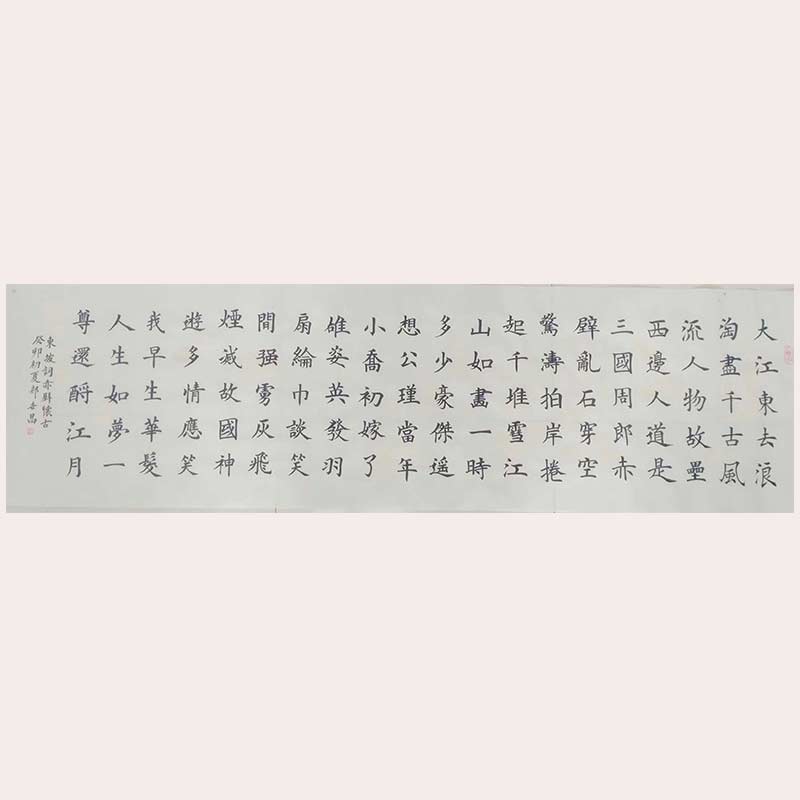 大江東去浪
淘盡千古風
流人物故壘
西邊人道是
三國周郎赤
壁亂石穿空
驚濤拍岸捲
起千堆雪江
山如畫一時
多少豪傑遥
想公瑾當年
小喬初嫁了
雄姿英發羽
扇綸巾談笑
間强虜灰飛
煙滅故國神
遊多情應笑
我早生華髮
人生如夢一
尊還酹江月
東坡詞赤壁懷古
癸卯初夏